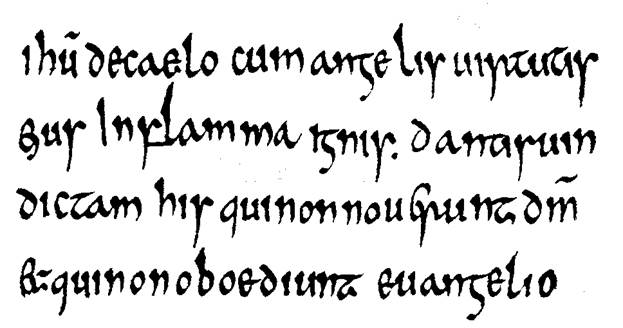 ihū decaelo cum angelis uirtutis
eius Inflamma ignis. dantisuin
dictam his quinonnouerunt dm̄
et quinonoboediunt euangelio